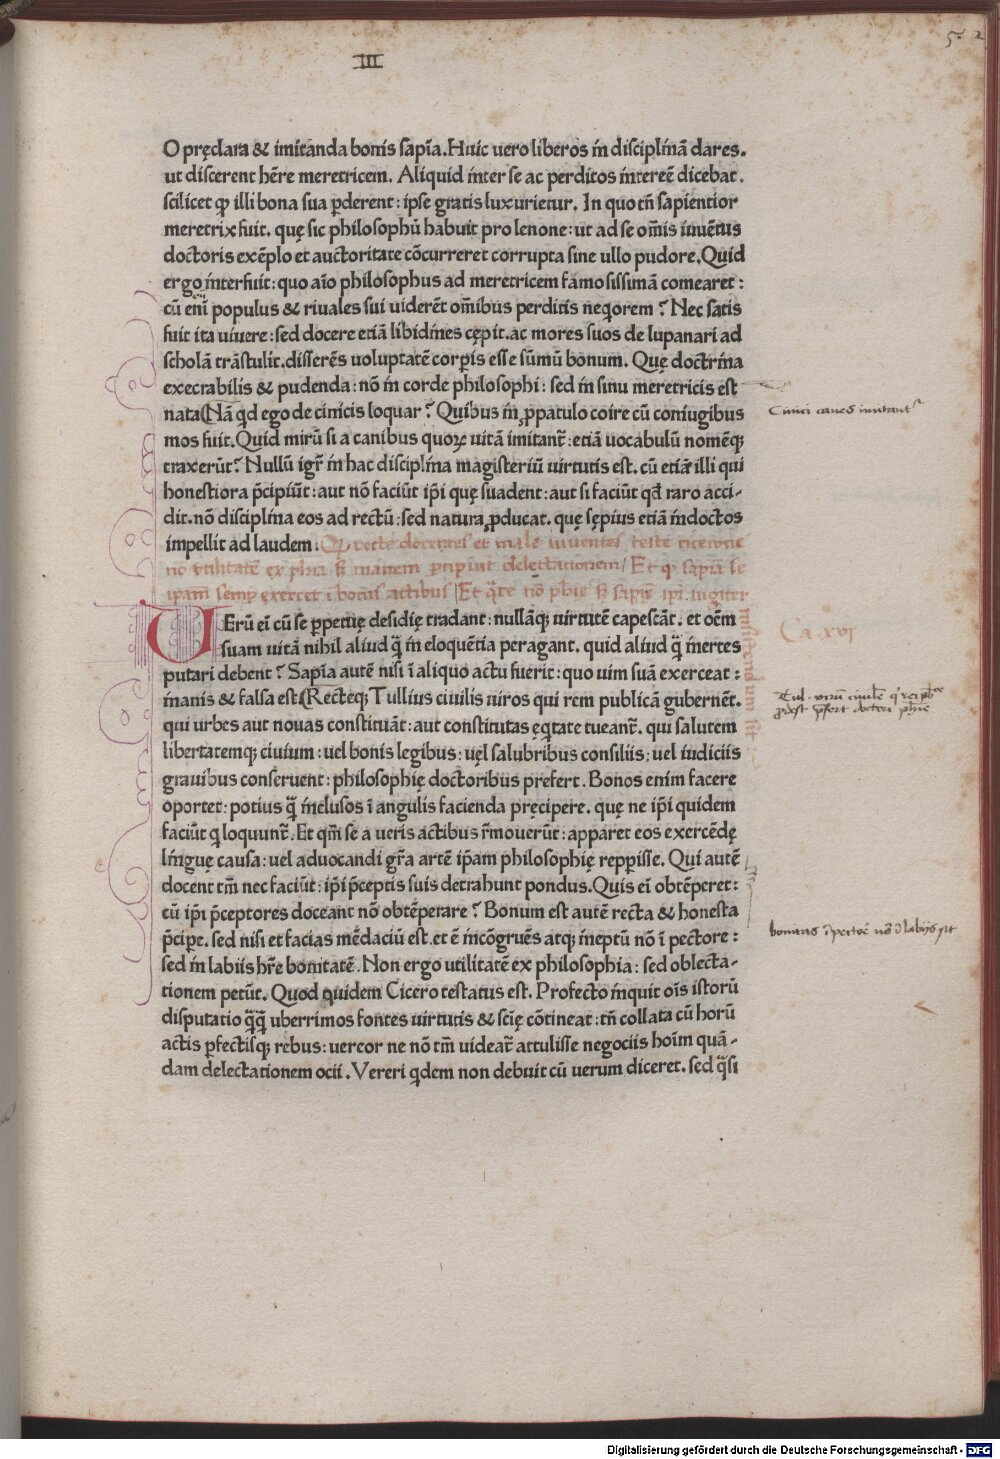 III
5 2
O pręclara & imitanda bonis sapīa. Huic uero liberos in disciplinā dares.
ut discerent hēre meretricem. Aliquid inter se ac perditos intereē dicebat.
scilicet ꝙ illi bona sua ꝑderent: ipse gratis luxurietur. In quo tn̄ sapientior
meretrix fuit. quę sic philosophū habuit pro lenone: ut ad se om̄is iuuētus
doctoris exēplo et auctoritate cōcurreret corrupta sine ullo pudore. Quid
ergo interfuit: quo aīo philosophus ad meretricem famosissimā comearet:
cū eni populus & riuales sui uiderēt om̄ibus perditis neq̇orem? Nec satis
fuit ita uiuere: sed docere etiā libidines cępit. ac mores suos de lupanari ad
scholā trāstulit. disserēs uoluptatē corꝑis esse sūmū bonum. Quę doctrina
execrabilis & pudenda: nō in corde philosophi: sed in sinu meretricis est
nata (Nā qd ego de cinicis loquar? Quibus in ꝓpatulo coire cū coniugibus
mos fuit. Quid mirū si a canibus quoꝝ uitā imitant̄: etiā uocabulū nomēq;
traxerūt? Nullū igr̄ in hac disciplina magisteriū uirtutis est. cū etiā illi qui
honestiora p̄cipiūt: aut nō faciūt ip̄i quę suadent: aut si faciūt qd̄ raro acci-
dit. nō disciplina eos ad rectū: sed natura ꝓducat. quę sępius etiā indoctos
impellit ad laudem.
Ꝙ recte docentes et male viuentes teste cicerone
nō vtilitatē ex phīa sꝫ inanem percipiūt delectationem / Et ꝙ sapīa se
ipam semꝑ exercet ī bonis actibus / Et q̄re nō phīe sꝫ sapīe ip̄i iugiter
insistendum sit
Ca. xvi
UErū ei cū se ꝑpetuę desidię tradant: nullāq; uirtutē capescāt. et oēm
suam uitā nihil aliud q̄ in eloquētia peragant. quid aliud q̄ inertes
putari debent? Sapīa autē nisi ī aliquo actu fuerit: quo uim suā exerceat:
inanis & falsa est (Recteq; Tullius ciuilis uiros qui rem publicā gubernēt.
qui urbes aut nouas constituāt: aut constitutas ęq̇tate tueant̄. qui salutem
libertatemq; ciuium: uel bonis legibus: uęl salubribus consiliis: uel iudiciis
grauibus conseruent: philosophię doctoribus prefert. Bonos enim facere
oportet: potius q̄ inclusos ī angulis facienda pręcipere. quę ne ip̄i quidem
faciūt q loquunt̄. Et qm̄ se a ueris actibus r̄mouerūt: apparet eos exercēdę
linguę causa: uel aduocandi gr̄a artē ip̄am philosophię repperisse. Qui autē
docent tm̄ nec faciūt: ip̄i p̄ceptis suis detrahunt pondus. Quis ei obtēperet:
cū ip̄i p̄ceptores doceant nō obtēperare? Bonum est autē recta & honesta
p̄ciꝑe. sed nisi et facias mēdaciū est. et ē incōgruēs atq; ineptū nō ī pectore:
sed in labiis hr̄e bonitatē. Non ergo utilitatē ex philosophia: sed oblecta-
tionem petūt. Quod quidem Cicero testatus est. Profecto inquit oīs istorū
disputatio q̄q̄ uberrimos fontes uirtutis & sciē cōtineat: tn̄ collata cū horū
actis ꝑfectisq; rebus: uereor ne nō tm̄ uideat̄ attulisse negociis hoim quā-
dam delectationem ocii. Vereri q̇dem non debuit cū uerum diceret. sed q̄si
Cinici canes imitant̄
Tul. virū ciuilē q̇ rei pbce
prodest prefert doctori phīe
bonitas ī pectore nō ī labiis sit
Digitalisierung gefördert durch die Deutsche Forschungsgemeinschaft - DFG